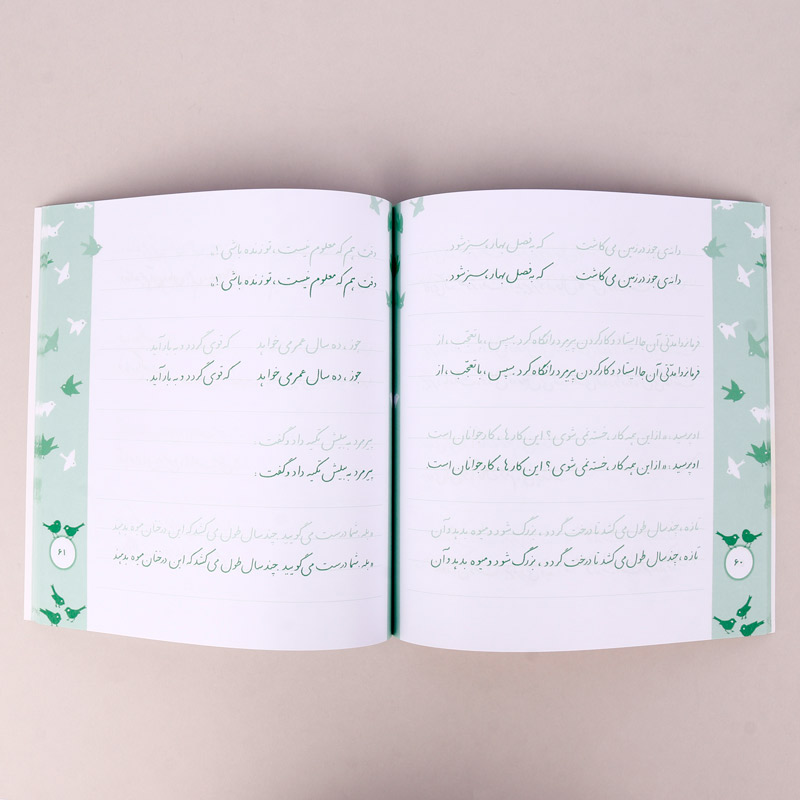 دانه‌ی جوز در زمین می‌کاشت که به فصل بهار، سبز شود
دانه‌ی جوز در زمین می‌کاشت که به فصل بهار، سبز شود
فرمانروا مدتی آن جا ایستاد و کار کردن پیرمرد را نگاه کرد. سپس، با تعجب، از
فرمانروا مدتی آن جا ایستاد و کار کردن پیرمرد را نگاه کرد. سپس، با تعجب، از
او پرسید: «از این همه کار، خسته نمی‌شوی؟ این کارها، کار جوانان است
او پرسید: «از این همه کار، خسته نمی‌شوی؟ این کارها، کار جوانان است
تازه، چند سال طول می‌کشد تا درخت گردو، بزرگ شود و میوه بدهد و آن
تازه، چند سال طول می‌کشد تا درخت گردو، بزرگ شود و میوه بدهد و آن
۶۰
وقت هم که معلوم نیست، تو زنده باشی!»
وقت هم که معلوم نیست، تو زنده باشی!»
جوز، ده سال عمر می‌خواهد که قوی گردد و به بار آید
جوز، ده سال عمر می‌خواهد که قوی گردد و به بار آید
پیرمرد به بیلش تکیه داد و گفت:
پیرمرد به بیلش تکیه داد و گفت:
«بله، شما درست می‌گویید. چند سال طول می‌کشد که این درختان میوه بدهند
«بله، شما درست می‌گویید. چند سال طول می‌کشد که این درختان میوه بدهند
۶۱